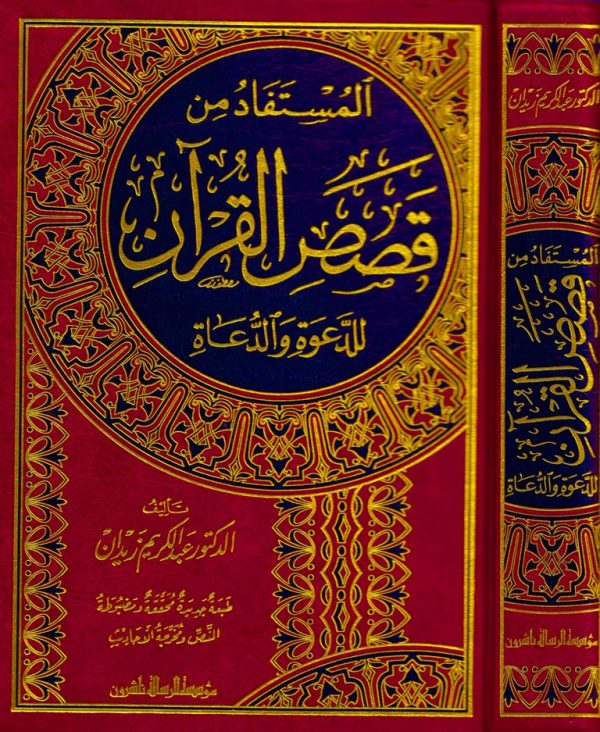 المُسْتَفَادُ مِن
قَصَصِ القُرآنِ
للدَّعَوَةِ وَالدُّعَاةِ
تأليفُ
الدكتور عبد الكريم زيدان
طَبعَةٌ جَديدَةٌ مُحَقَّقَةٌ وَمَضبُوطَةُ
النَّصِّ وَمُخَرَّجَةُ الأحَاديثِ
مؤسسة الرسالة ناشرون
الدكتور عبد الكريم زيدان
المُسْتَفَادُ مِن
قَصَصِ القُرآنِ
للدَّعَوَةِ وَالدُّعَاةِ
مؤسسة الرسالة ناشرون